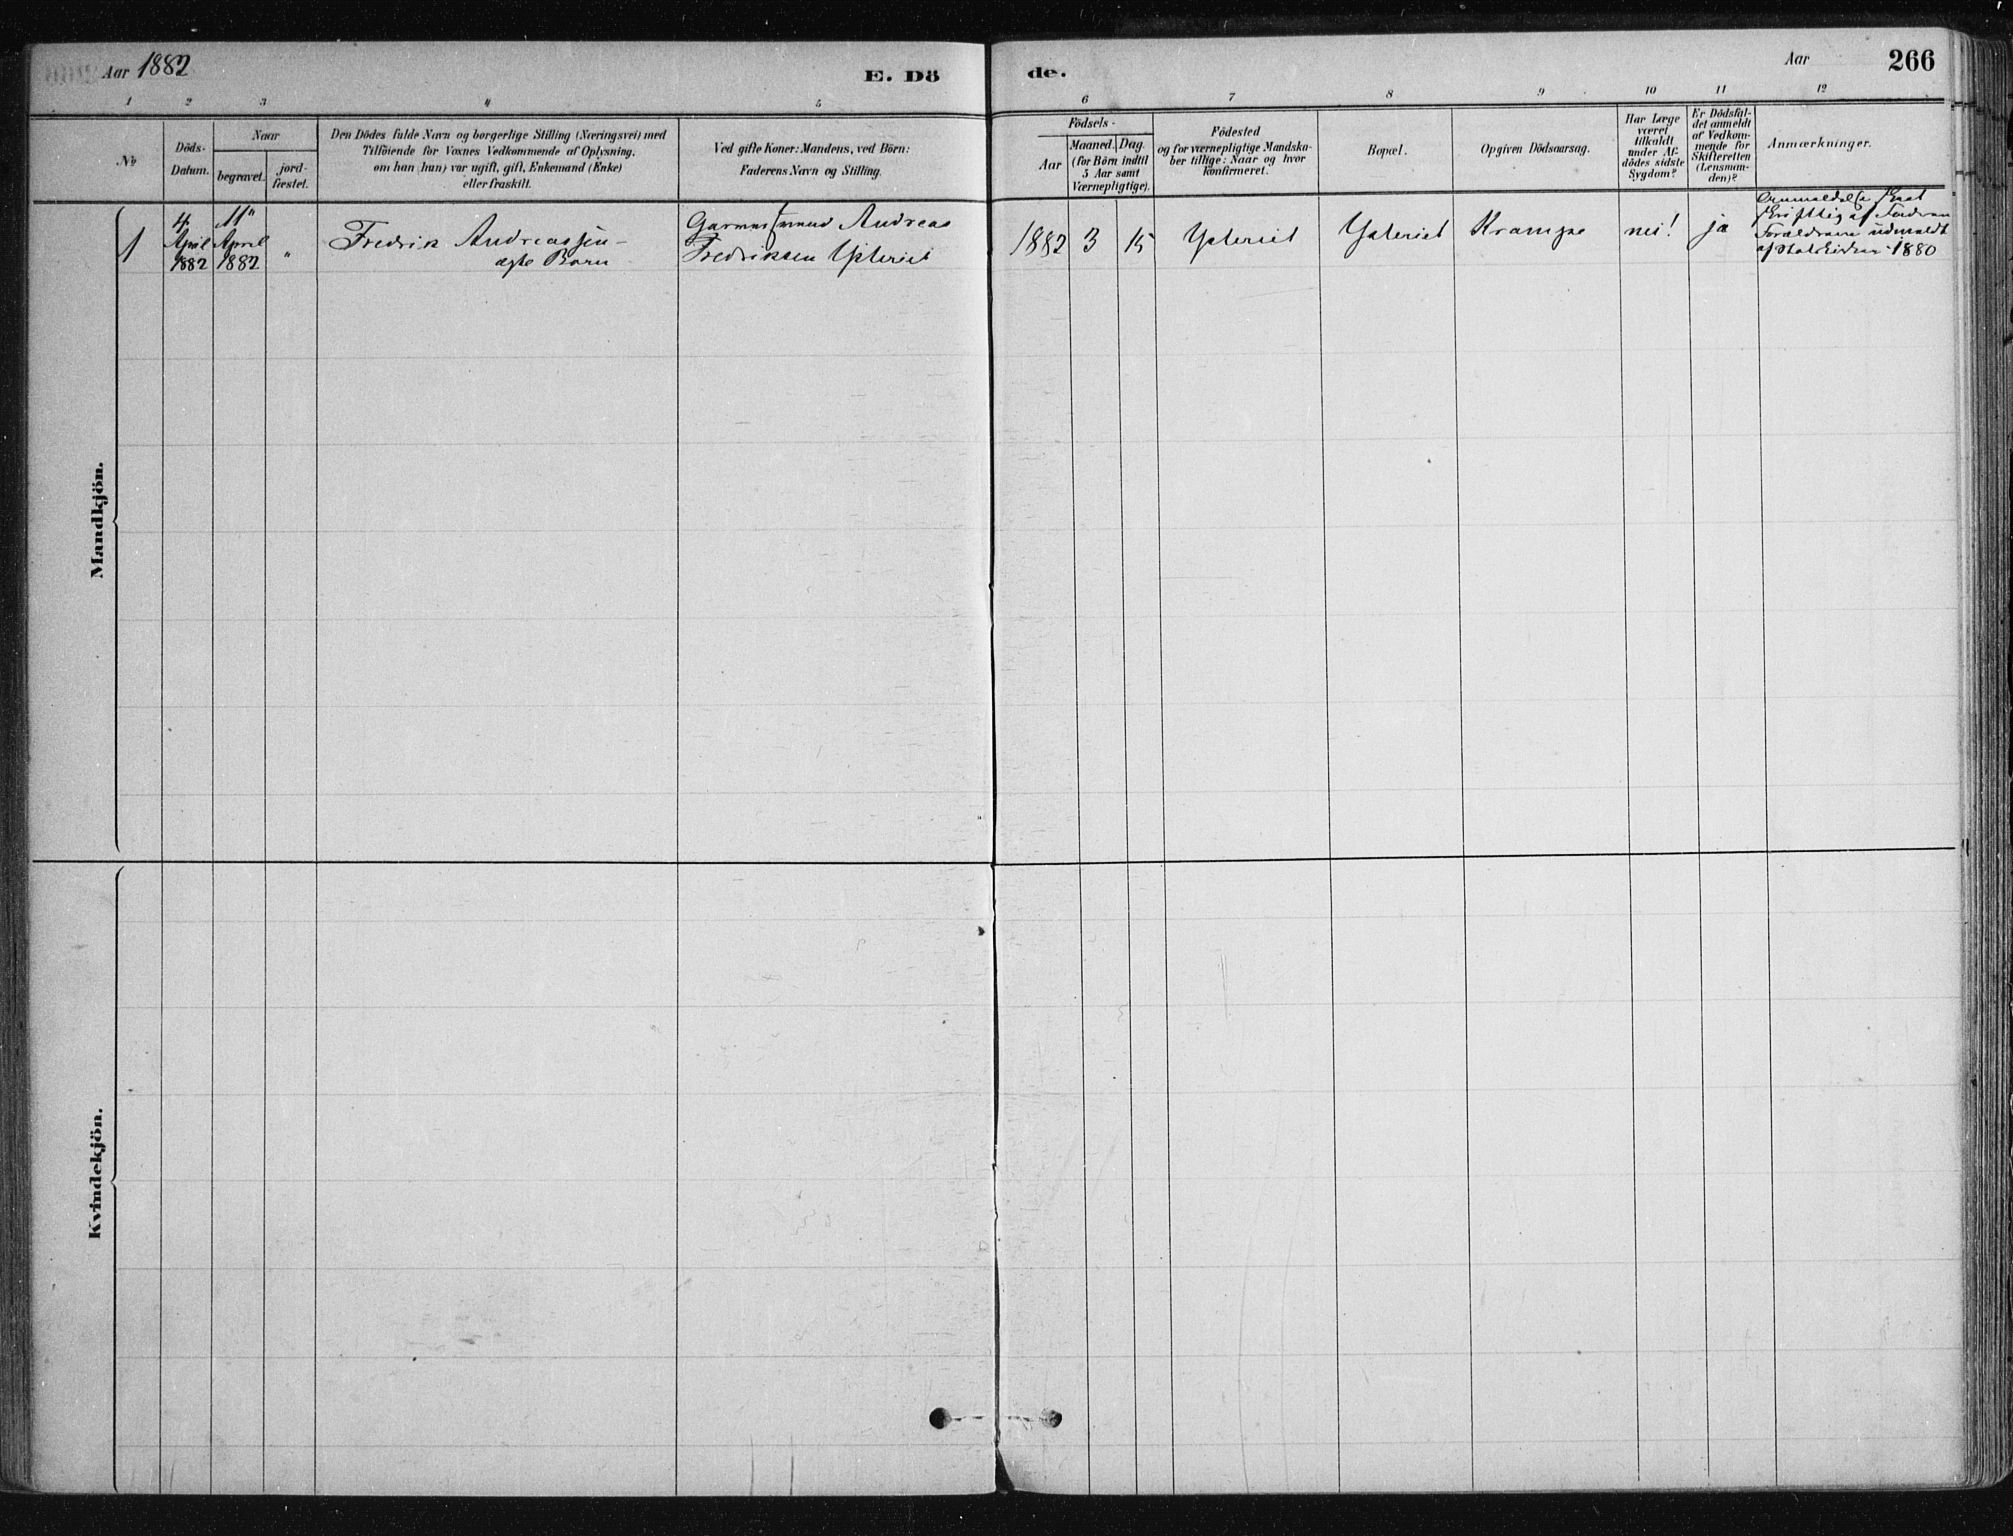 Aar 1882
E. Dö
de.
Aar
266
1 2 3 4 5
6 7 8 9 10 11 12
No
Döds-
Datum.
Naar
begravet.
jord-
fæstet.
Den Dödes fulde Navn og borgerlige Stilling (Næringsvei) med
Tilföiende for Voxnes Vedkommende af Oplysning,
om han (hun) var ugift, gift, Enkemand (Enke)
eller fraskilt.
Ved gifte Koner: Mandens, ved Börn:
Faderens Navn og Stilling.
Födsels-
Aar
Maaned.
Dag.
(for Börn indtil
5 Aar samt
Værnepligtige).
Födested
og for værnepligtige Mandska-
ber tillige: Naar og hvor
konfirmeret.
Bopæl.
Opgiven Dödsaarsag.
Har Læge
været
tilkaldt
under Af-
dödes sidste
Sygdom?
Er Dödsfal-
det anmeldt
af Vedkom-
mende for
Skifteretten
(Lensman-
den)?
Anmærkninger.
Mandkjön.
1
4
April
1882
11"
April
1882
"
Fredrik Andreassen -
ægte Barn
Andreas
Fredriksen Ysteriet
1882
3
15
Ysteriet
Ysteriet
Krampe
nei!
ja
Skriftlig af
Forældrene udmeldt
af Statskirken 1880
Kvindekjön.